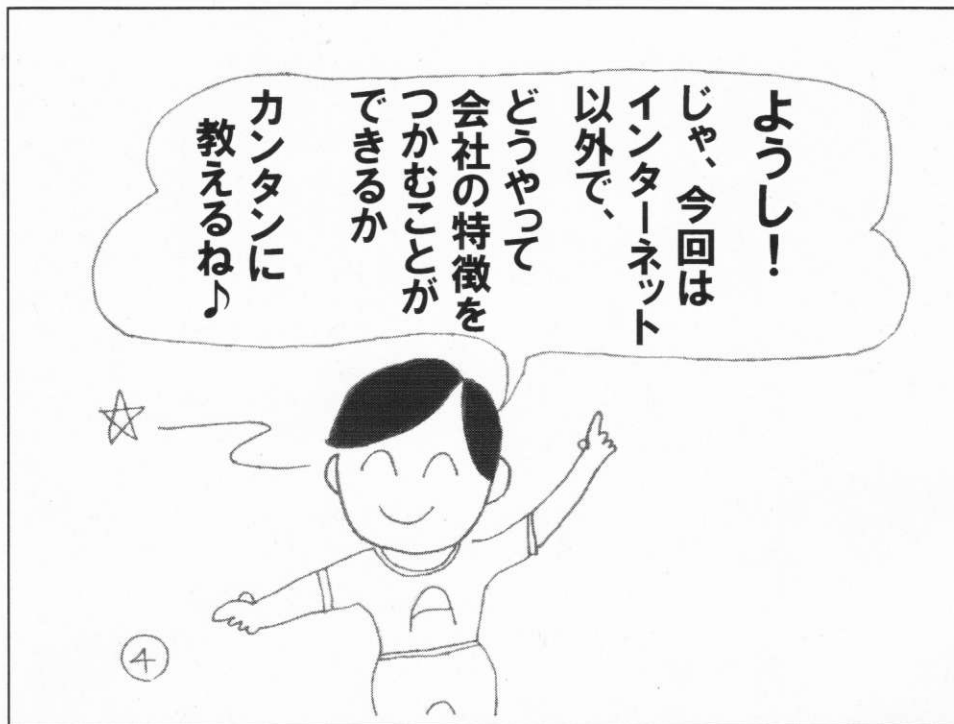 ようし！
じゃ、今回は
インターネット
以外で、
どうやって
会社の特徴を
つかむことが
できるか
カンタンに
教えるね♪
A
④